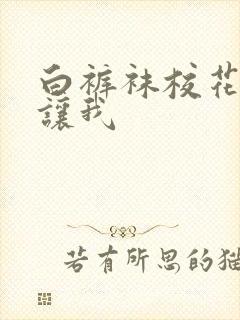 白裤袜校花
讓我
若有所思的猫